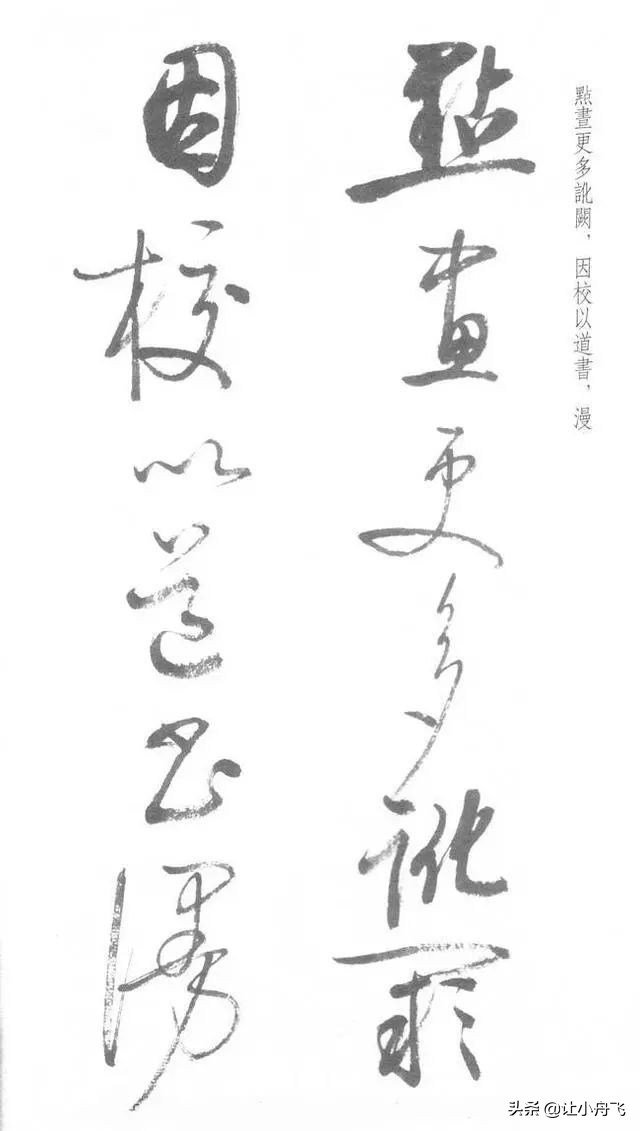 點畫更多訛闕，因校以道書，漫
點畫更多訛闕
因校以道書漫
头条 @让小舟飞